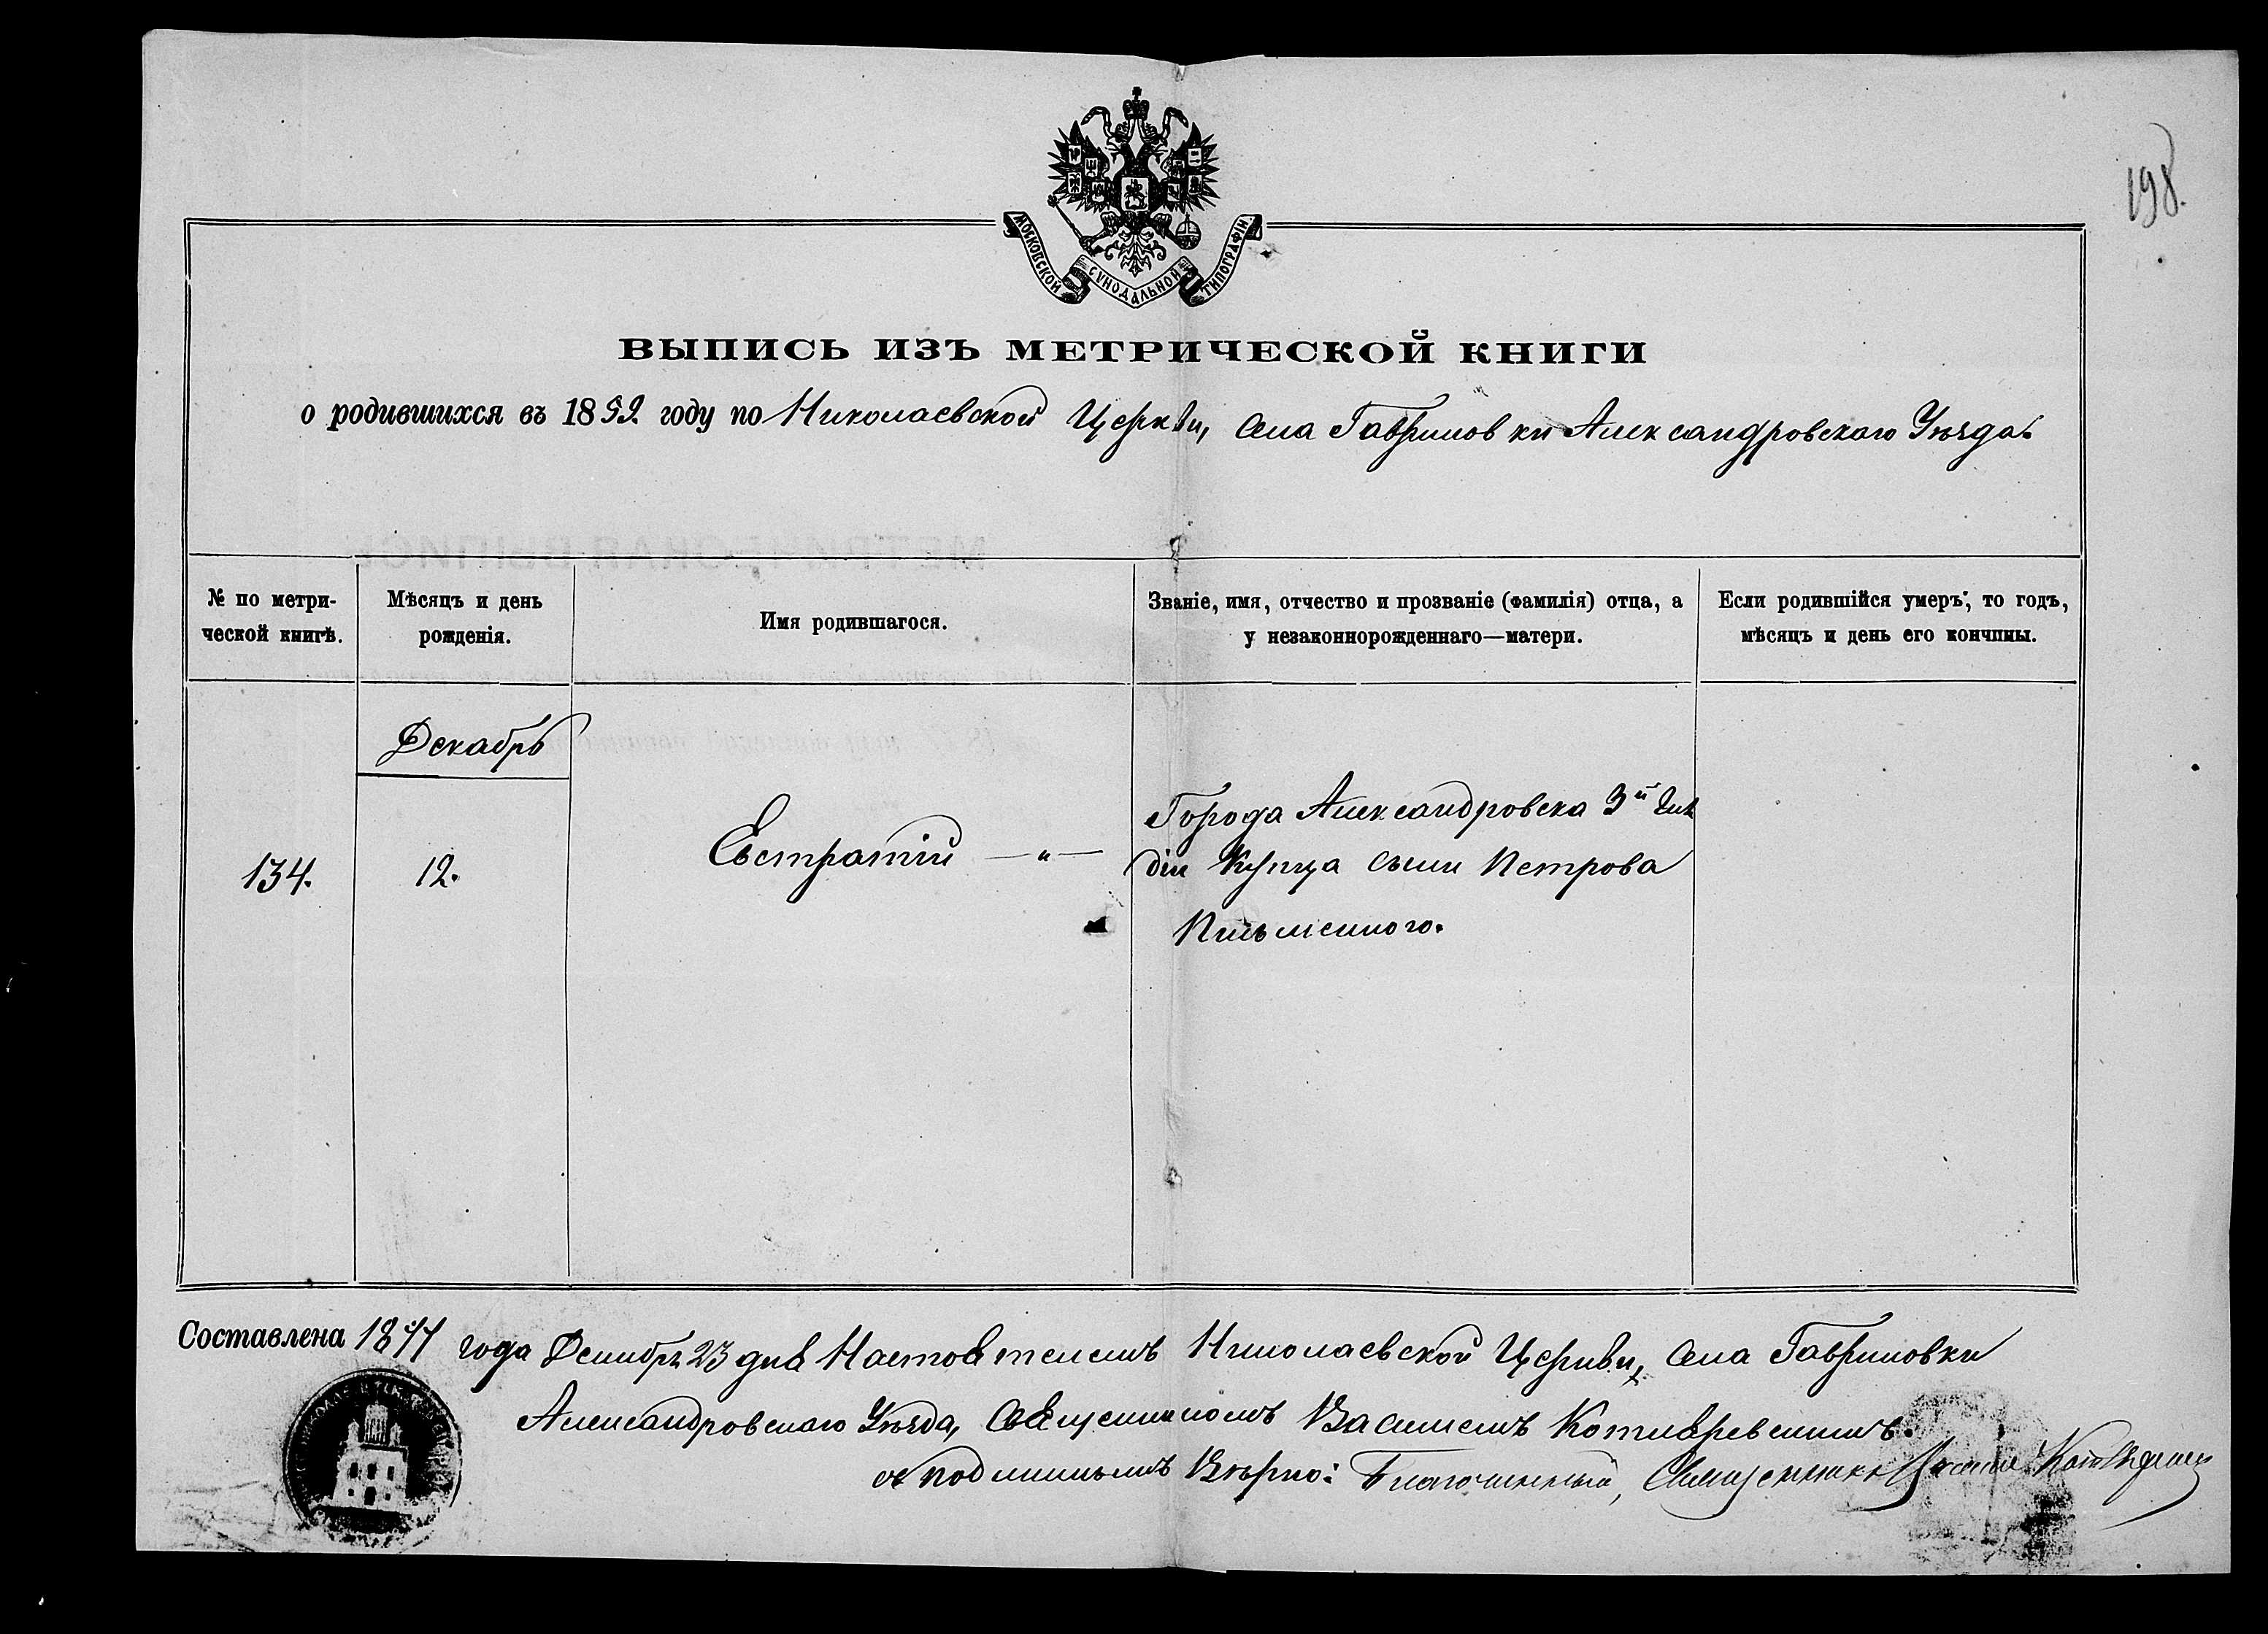 198.
МОСКОВСКОЙ СУНОДАЛЬНОЙ ТИПОГРАФІИ.
ВЫПИСЬ ИЗЪ МЕТРИЧЕСКОЙ КНИГИ
о родившихся въ 1859. году по Николаевской Церкви, села Гавриловки Александровскаго Уѣзда.
№ по метри-
ческой книгѣ.
Мѣсяцъ и день
рожденія.
Имя родившагося.
Званіе, имя, отчество и прозваніе (фамилія) отца, а
у незаконнорожденнаго—матери.
Если родившійся умеръ, то годъ,
мѣсяцъ и день его кончины.
Декабрь
134.
12.
Евстратій — „ —
Города Александровска 3й Гил
діи Купца Петрова
Письменного.
Составлена 1877 года Декабря 23 дня Настоятелемъ Николаевской Церкви, села Гавриловки
Александровскаго Уѣзда, Священникомъ Василіемъ Котляревскимъ.
съ подлиннымъ Вѣрно: Благочинный, Священникъ Василій